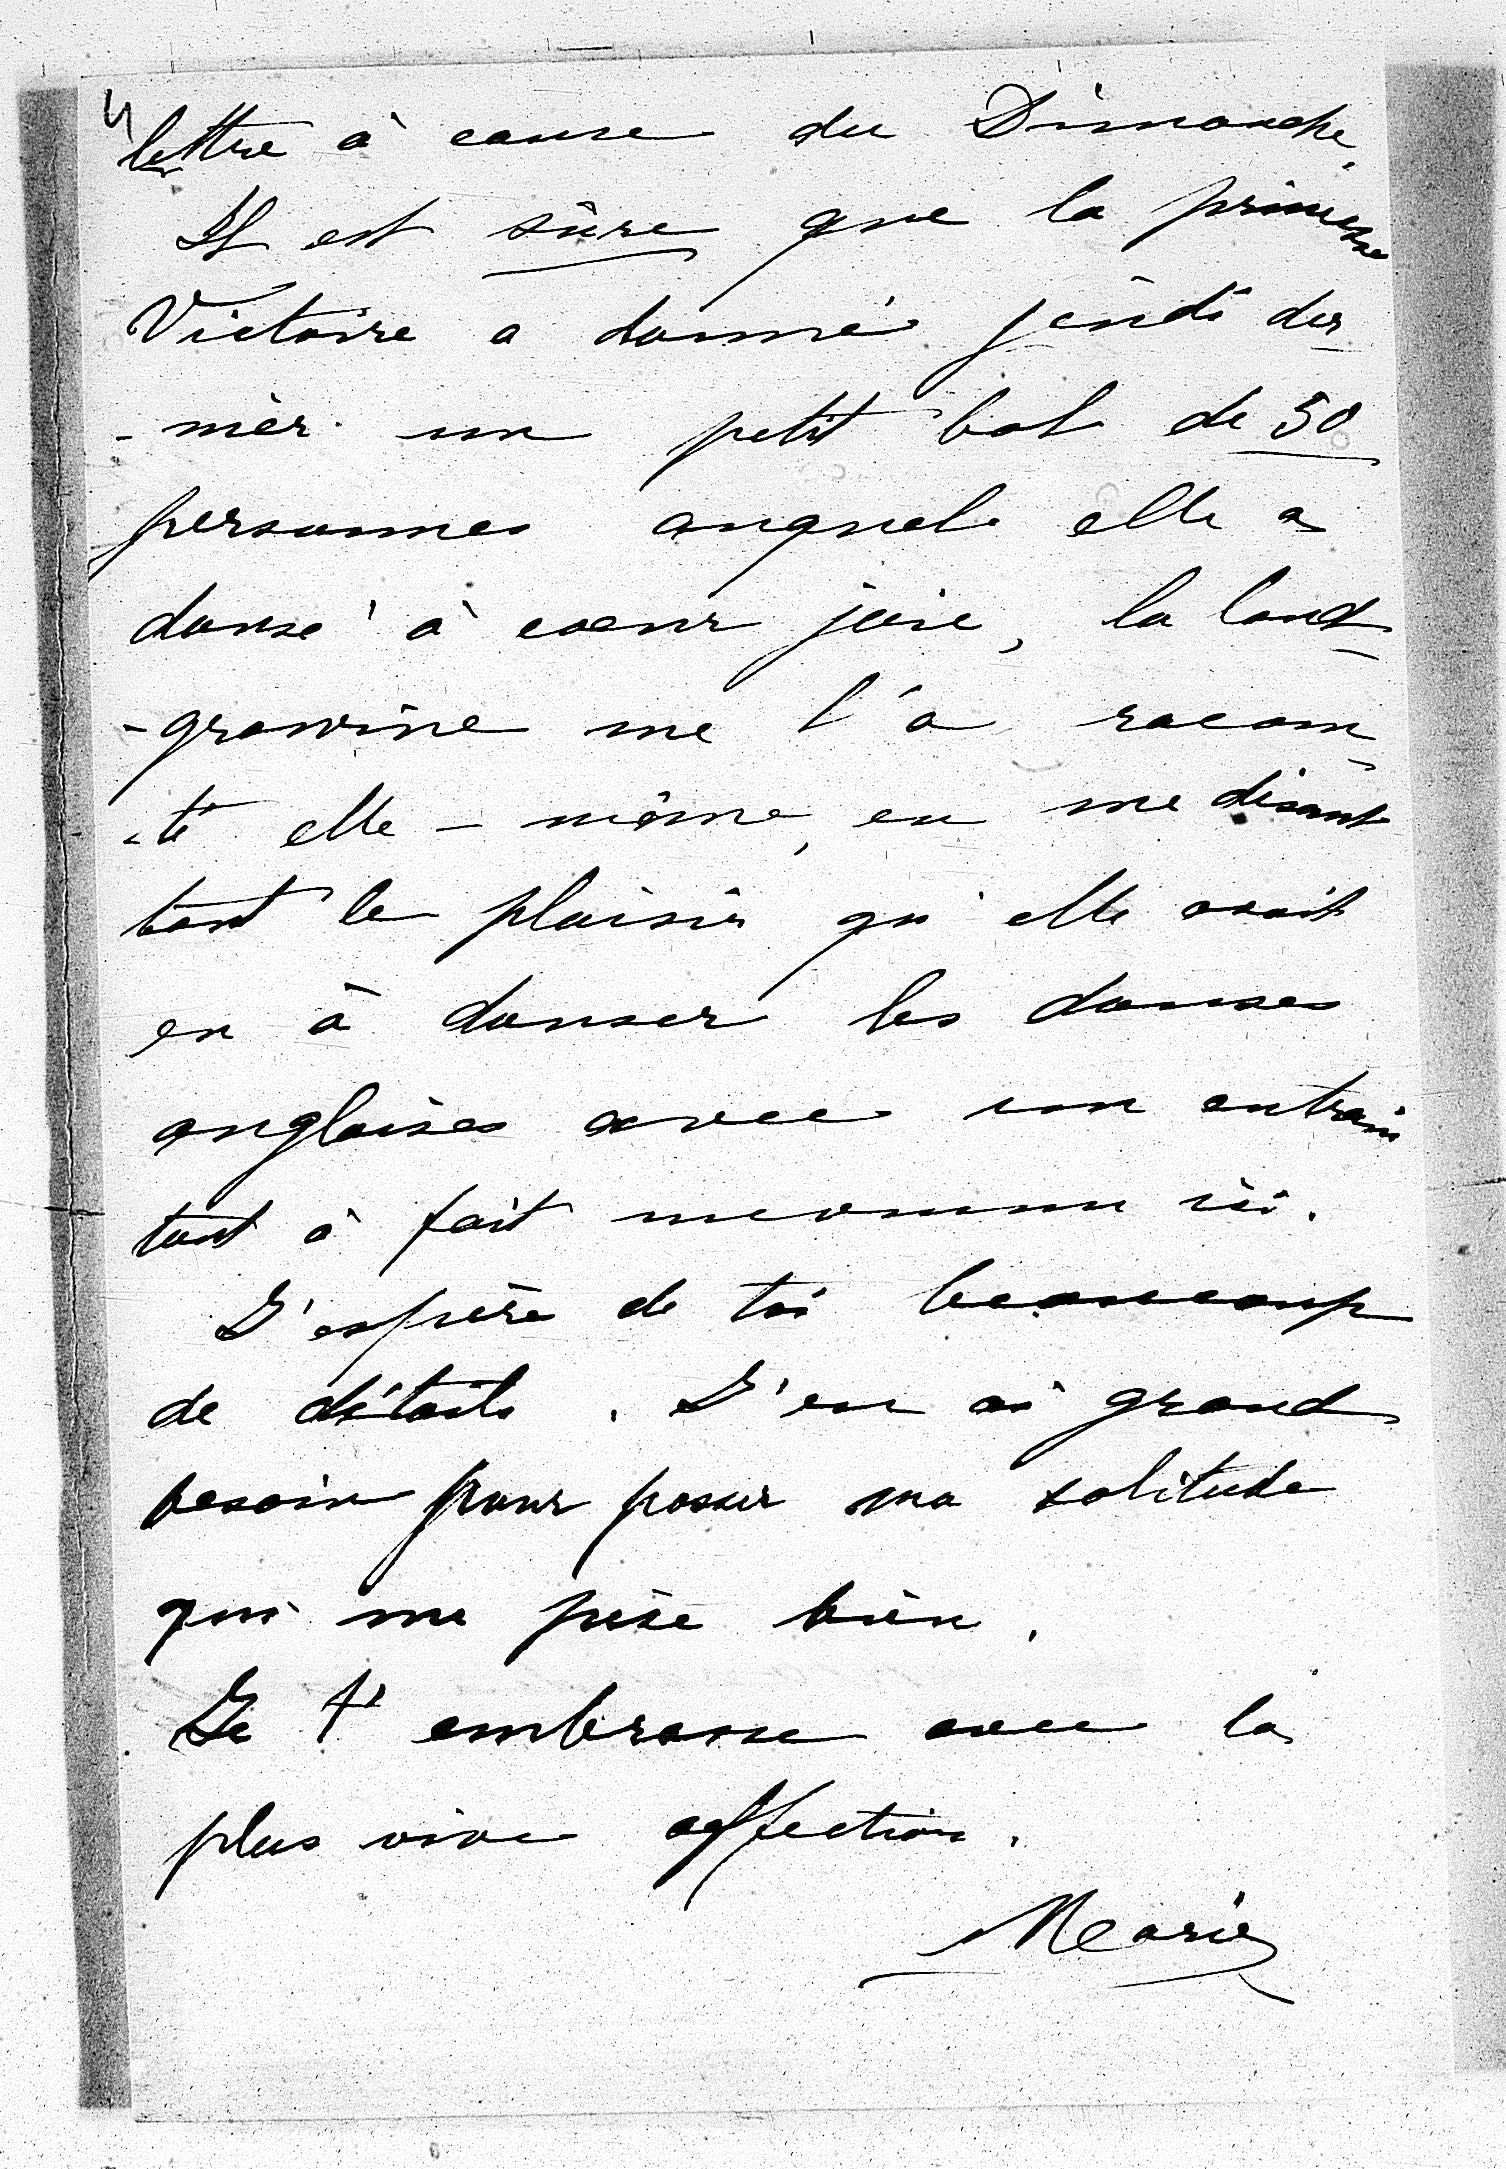 4
lettre à cause du Dimanche.
Il est sûre que la princesse
Victoire a donné jeudi der
-nier un petit bal de 50
personnes auquel elle a
dansé à coeur joie, la land
-gravine me l'a racon
-té elle-même, en me disant
tout le plaisir qu'elle avait
eu à danser les danses
anglaises avec un entrain
tout à fait inconnu ici.
J'espère de toi beaucoup
de détails. J'en ai grand
besoin pour passer ma solitude
qui me pèse bien.
Je t'embrasse avec la
plus vive affection.
Marie